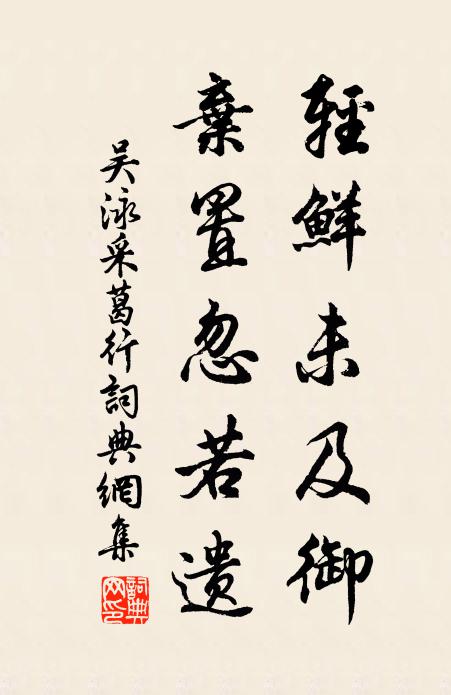 輕鮮未及御
棄置忽若遺
吴泳采葛行詞典網集
詞典網印